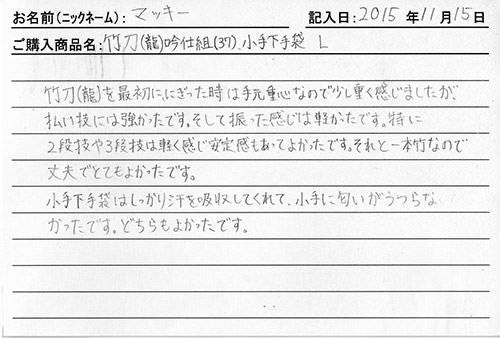 お名前(ニックネーム): マッキー 記入日: 2015 年 11月 15日
ご購入商品名: 竹刀(龍)吟仕組(37)、小手下手袋 L
竹刀(龍)を最初ににぎった時は手元重心なので少し重く感じましたが、
払い技には強かったです。そして振った感じは軽かったです。特に
2段技や3段技は軽く感じ安定感もあってよかったです。それと一本竹なので
丈夫でとてもよかったです。
小手下手袋はしっかり汗を吸収してくれて、小手に匂いがうつらな
かったです。どちらもよかったです。